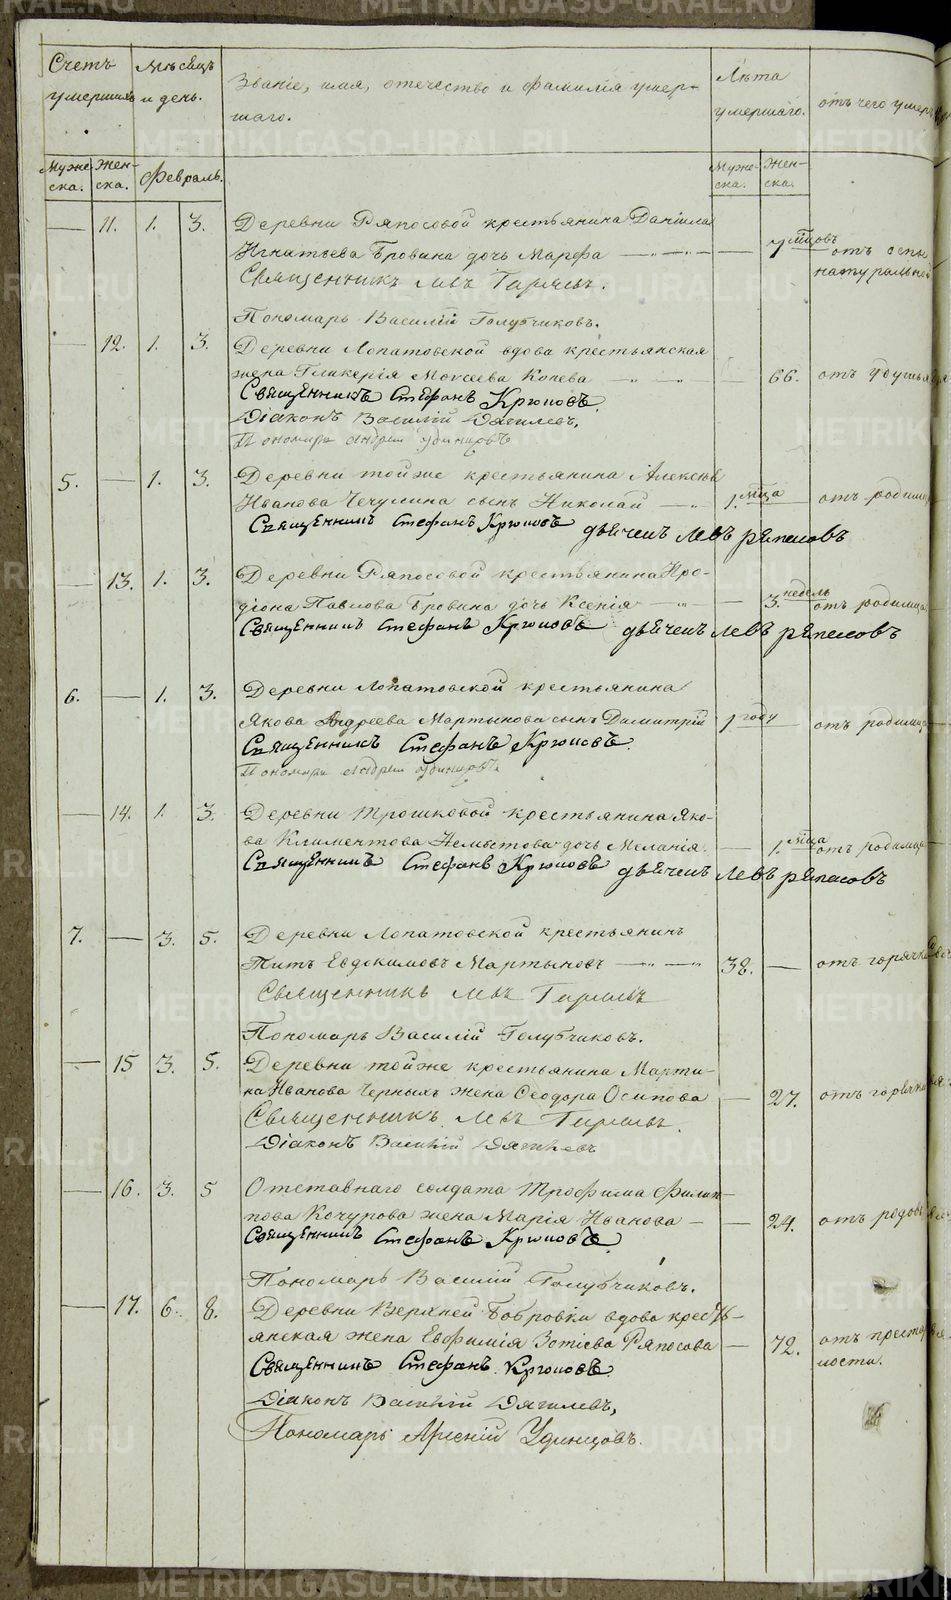 Счетъ умершихъ
Мѣсяцъ и день.
Званіе, имя, отечество и фамилія умер-
шаго.
Лѣта умершаго.
отъ чего умеръ
Муже-
ска.
Жен-
ска.
Февраль.
Муже-
ска.
Жен-
ска.
— 11. 1. 3. Деревни Ряпосовой крестьянина Даніила
Игнатьева Бровина дочь Марфа — — 7 мцовъ отъ оспы
натуральной
Священникъ Левъ
Пономарь Василій Голубчиковъ.
— 12. 1. 3. Деревни Лопатовской вдова крестьянская
жена Гликерія Моѵсеева Копева — — 66. отъ удушья
Священникъ Стефанъ Крюковъ.
Діаконъ Василій Дягилевъ.
Пономарь Андрей Удинцовъ
5. — 1. 3. Деревни тойже крестьянина Алексѣя
Иванова Чечулина сынъ Николай — 1. мца — отъ родимца
Священникъ Стефанъ Крюковъ дьячекъ Левъ ряпасовъ
— 13. 1. 3. Деревни Ряпосовой крестьянина Иро-
діона Павлова Бровина дочь Ксенія — — 3. недель отъ родимца
Священникъ Стефанъ Крюковъ дьячекъ Левъ ряпасовъ
6. — 1. 3. Деревни Лопатовской крестьянина
Якова Андреева Мартынова сынъ Димитрій 1 году — отъ родимца
Священникъ Стефанъ Крюковъ.
Пономарь Андрей Удинцовъ.
— 14. 1. 3. Деревни Трошковой крестьянина Яко-
ва Климентова дочь Меланія. — 1. мца отъ родимца
Священникъ Стефанъ Крюковъ дьячекъ Левъ ряпасовъ
7. — 3. 5. Деревни Лопатовской крестьянинъ
Титъ Евдокимовъ Мартыновъ — — 38. — отъ горячки
Священникъ Левъ
Пономарь Василій Голубчиковъ.
— 15 3. 5. Деревни тойже крестьянина Марти-
на Иванова Черныхъ жена Ѳеодора Осипова — 27. отъ горячки
Священникъ Левъ
Діаконъ Василій Дягилевъ
— 16. 3. 5 Отставнаго солдата Трофима Филип-
пова Кочурова жена Марія Иванова — — 24. отъ родовъ
Священникъ Стефанъ Крюковъ.
Пономарь Василій Голубчиковъ.
— 17. 6. 8. Деревни Верхней Бобровки вдова кресть-
янская жена Евфимія Зотіева Ряпосова — 72. отъ престарѣ-
лости.
Священникъ Стефанъ Крюковъ.
Діаконъ Василій Дягилевъ,
Пономарь Арсеній Удинцовъ.
METRIKI.GASO-URAL.RU